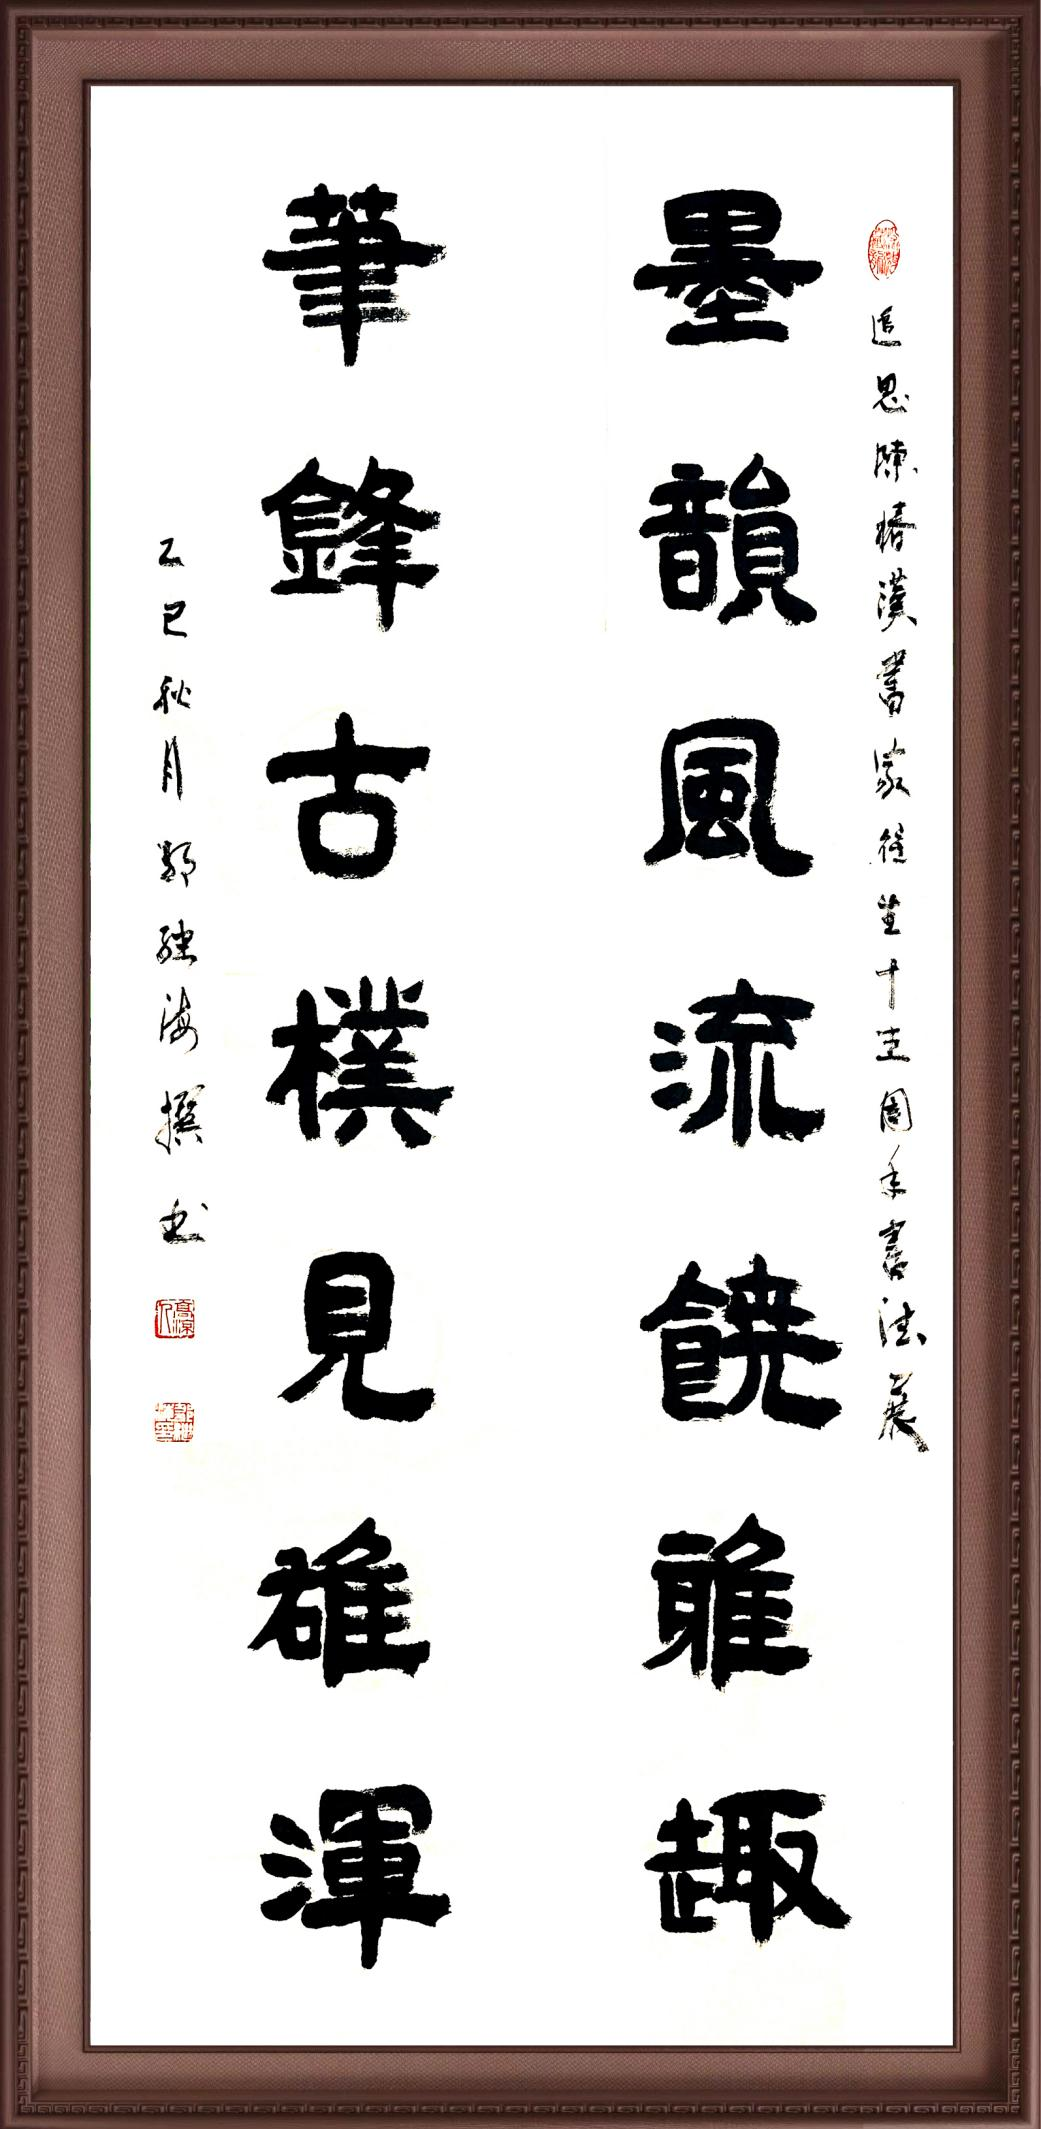 追思陳椿漢書家從生十五周年書法展
墨韻風流饒雅趣
筆鋒古樸見雄渾
乙巳秋月 鄭 海撰書
高涼